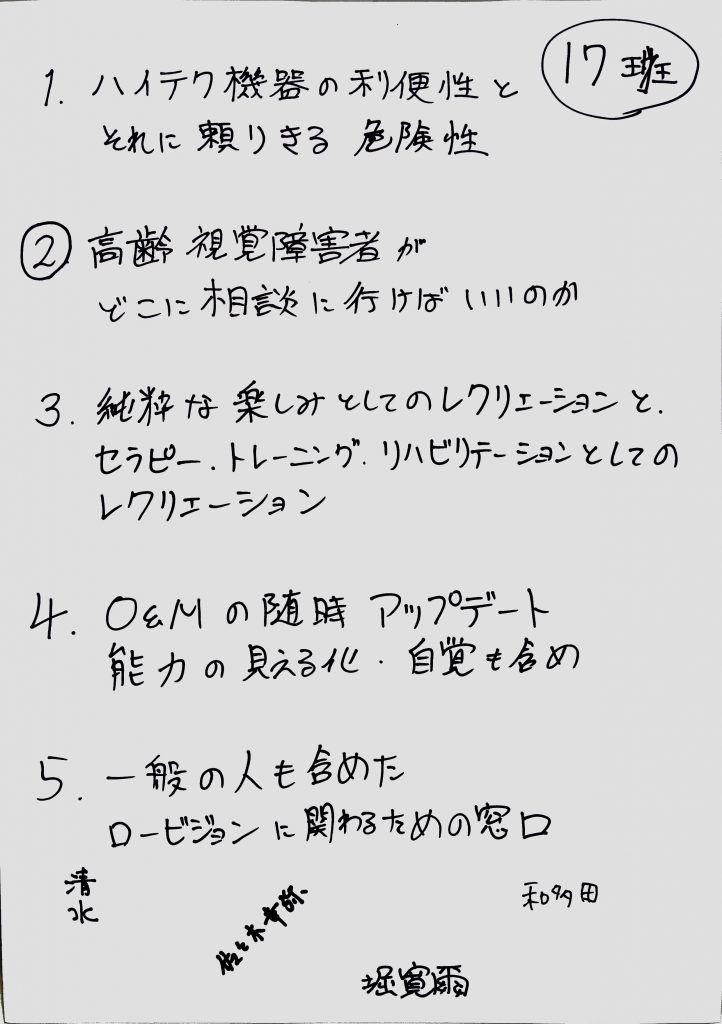 17班
1. ハイテク機器の利便性と
それに頼りきる 危険性
② 高齢 視覚障害者が
どこに相談に行けばいいのか
3. 純粋な楽しみとしてのレクリエーションと、
セラピー、トレーニング、リハビリテーションとしての
レクリエーション
4. O&Mの随時アップデート
能力の見える化・自覚も含め
5. 一般の人も含めた
ロービジョンに関わるための窓口
清水
佐々木
和多田
堀寛爾